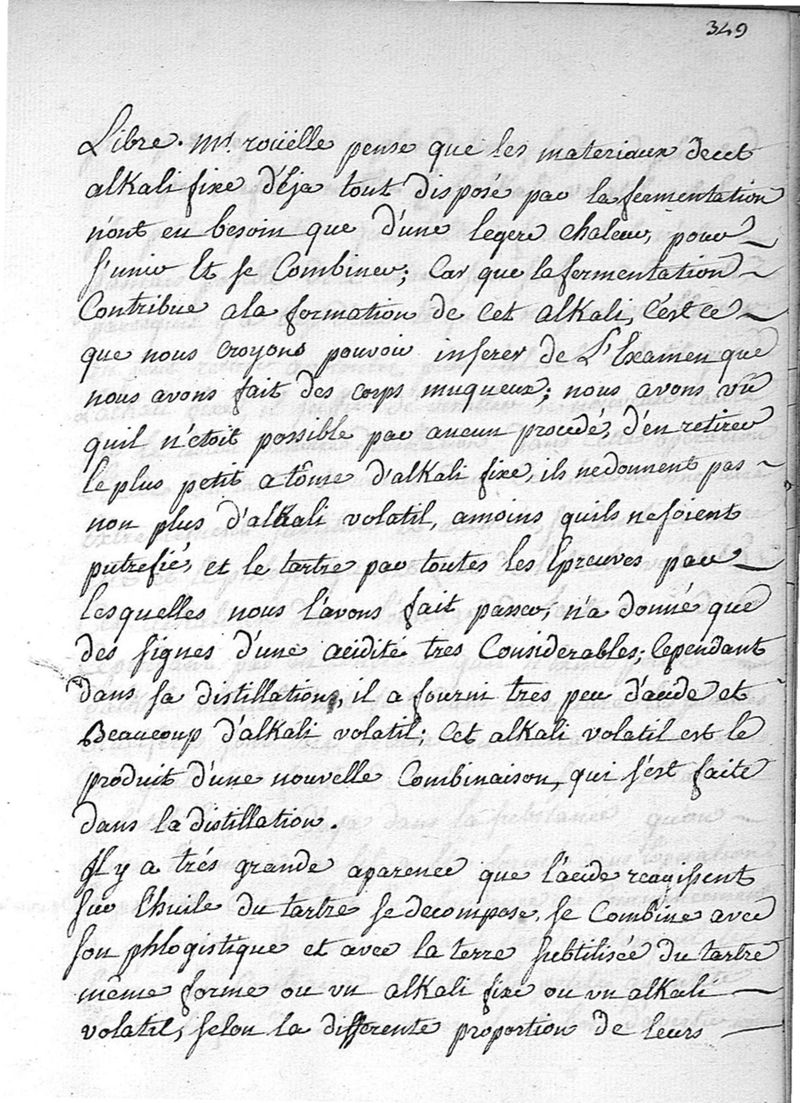 349
Libre. Mr. roüelle pense que les materiaux decet
alkali fixe déja tout disposé par la fermentation
n'ont eu besoin que d'une legere chaleur, pour
s'unir Et se Combiner; Car que la fermentation
Contribue ala formation de Cet alkali, c'est ce
que nous croyons pouvoir inferer de L'Examen que
nous avons fait des corps muqueux; nous avons vû
quil n'etoit possible par aucun procedé, d'en retirer
le plus petit atôme d'alkali fixe, ils nedonnent pas
non plus d'alkali volatil, amoins quils nesoient
putrefiés, et le tartre par toutes les Epreuves par
lesquelles nous l'avons fait passer, n'a donné que
des signes d'une acidité tres Considerables; Cependant
dans sa distillation, il a fourni tres peu d'acide et
Beaucoup d'alkali volatil; Cet alkali volatil est le
produit d'une nouvelle Combinaison, qui s'est faite
dans la distillation.
Il y a trés grande aparence que l'acide reagissent
sur l'huile du tartre se decompose, se Combine avec
son phlogistique et avec la terre subtilisée du tartre
même forme ou un alkali fixe ou un alkali
volatil, selon la differente proportion de leurs